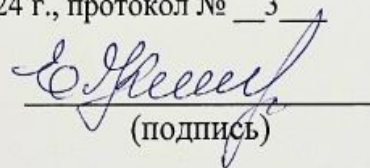 24 г., протокол № __3__
(подпись)